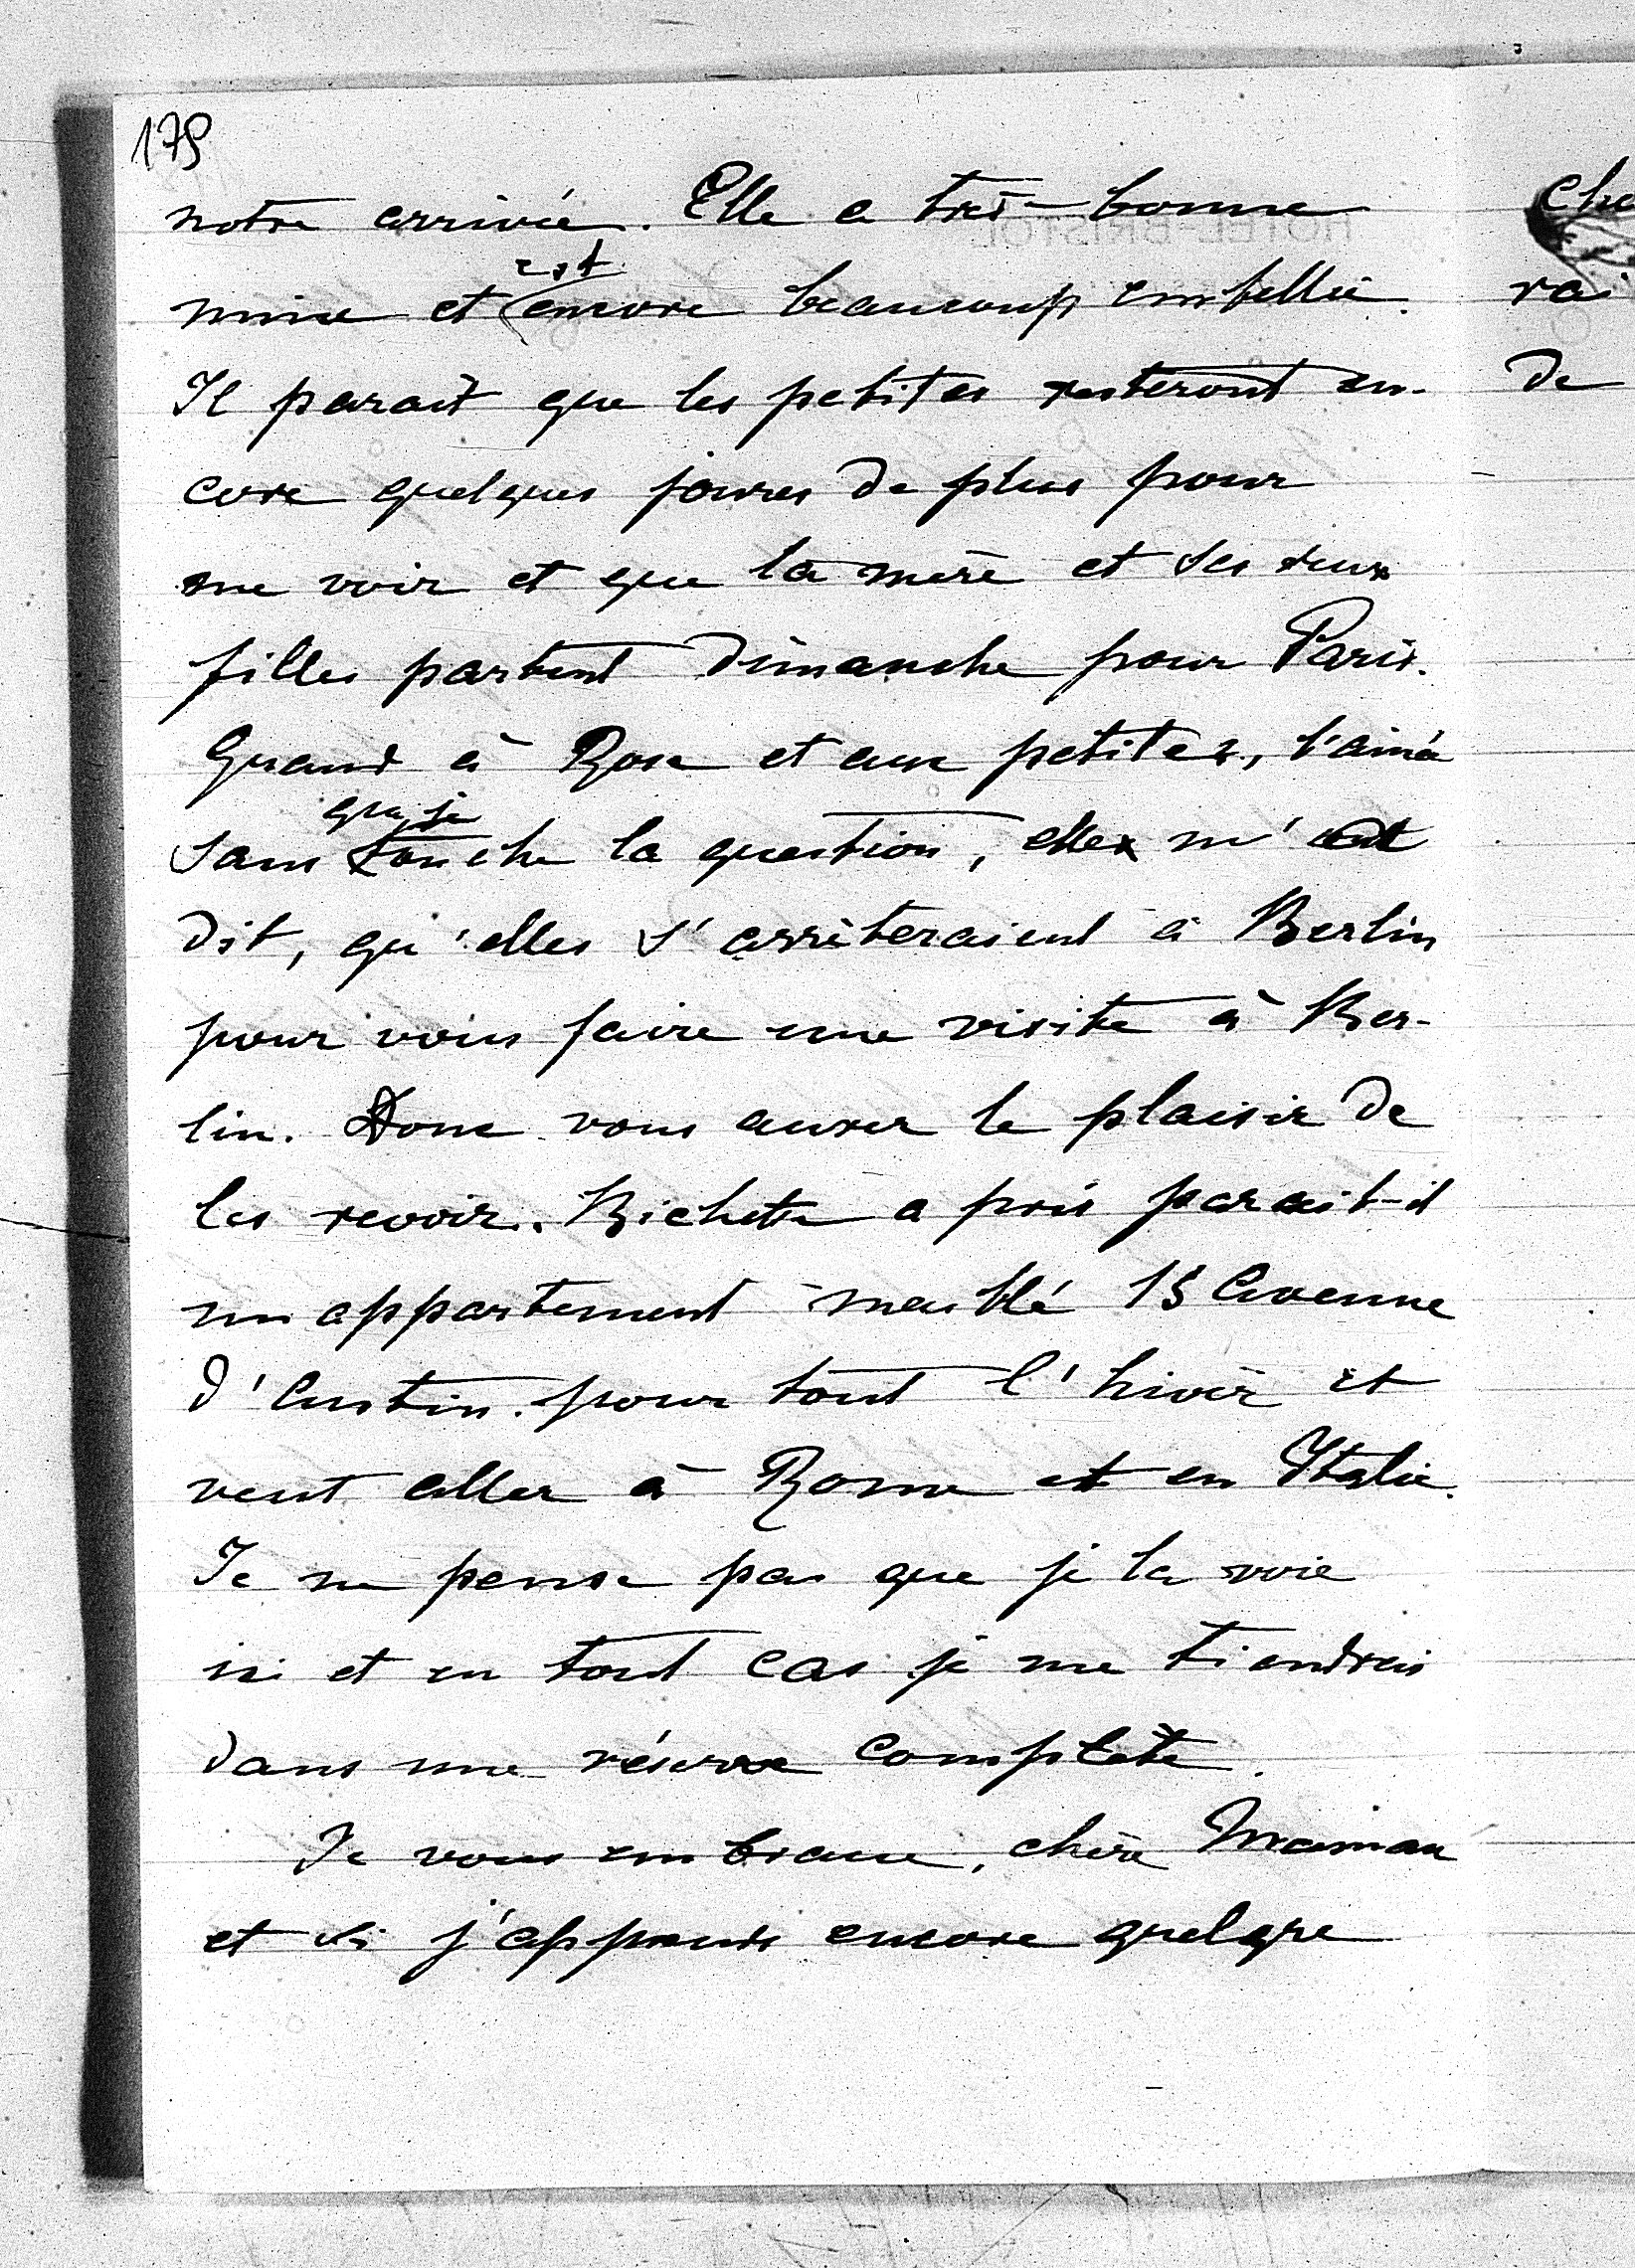 179
notre arrivée. Elle a très-bonne
mine et est encore beaucoup embellie.
Il parait que les petites resteront en-
core quelques joures de plus pour
me voir et que la mère et ses deux
filles partent dimanche pour Paris.
Quand à Rose et aux petites, l'ainée
sans que je touche la question, elle m'a
dit, qu'elles s'arrêteraient à Berlin
pour vous faire une visite à Ber-
lin. Donc vous aurez le plaisir de
les revoir. Bichette a pris parait-il
un appartement meublé 15 Avenue
d'Antin. pour tout l'hiver et
veut aller à Rome et en Italie.
Je ne pense pas que je la voie
ici et en tout cas je me tiendrais
dans une réserve complète.
Je vous embrasse, chère Maman
et si j'apprends encore quelque
HOTEL-BRISTOL
Che
rai
de